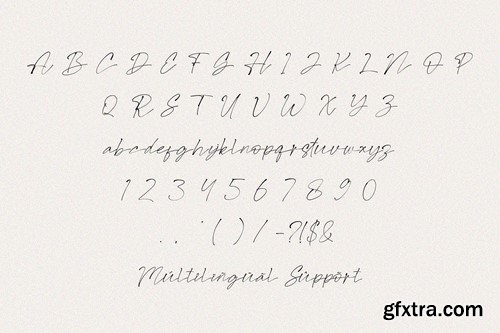 A B C D E F G H I J K L N O P
Q R S T U V W X Y Z
abcdefghijklnopqrstuvwxyz
1 2 3 4 5 6 7 8 9 0
. , ' ( ) / - ?!$&
Multilingual Support
gfxtra.com